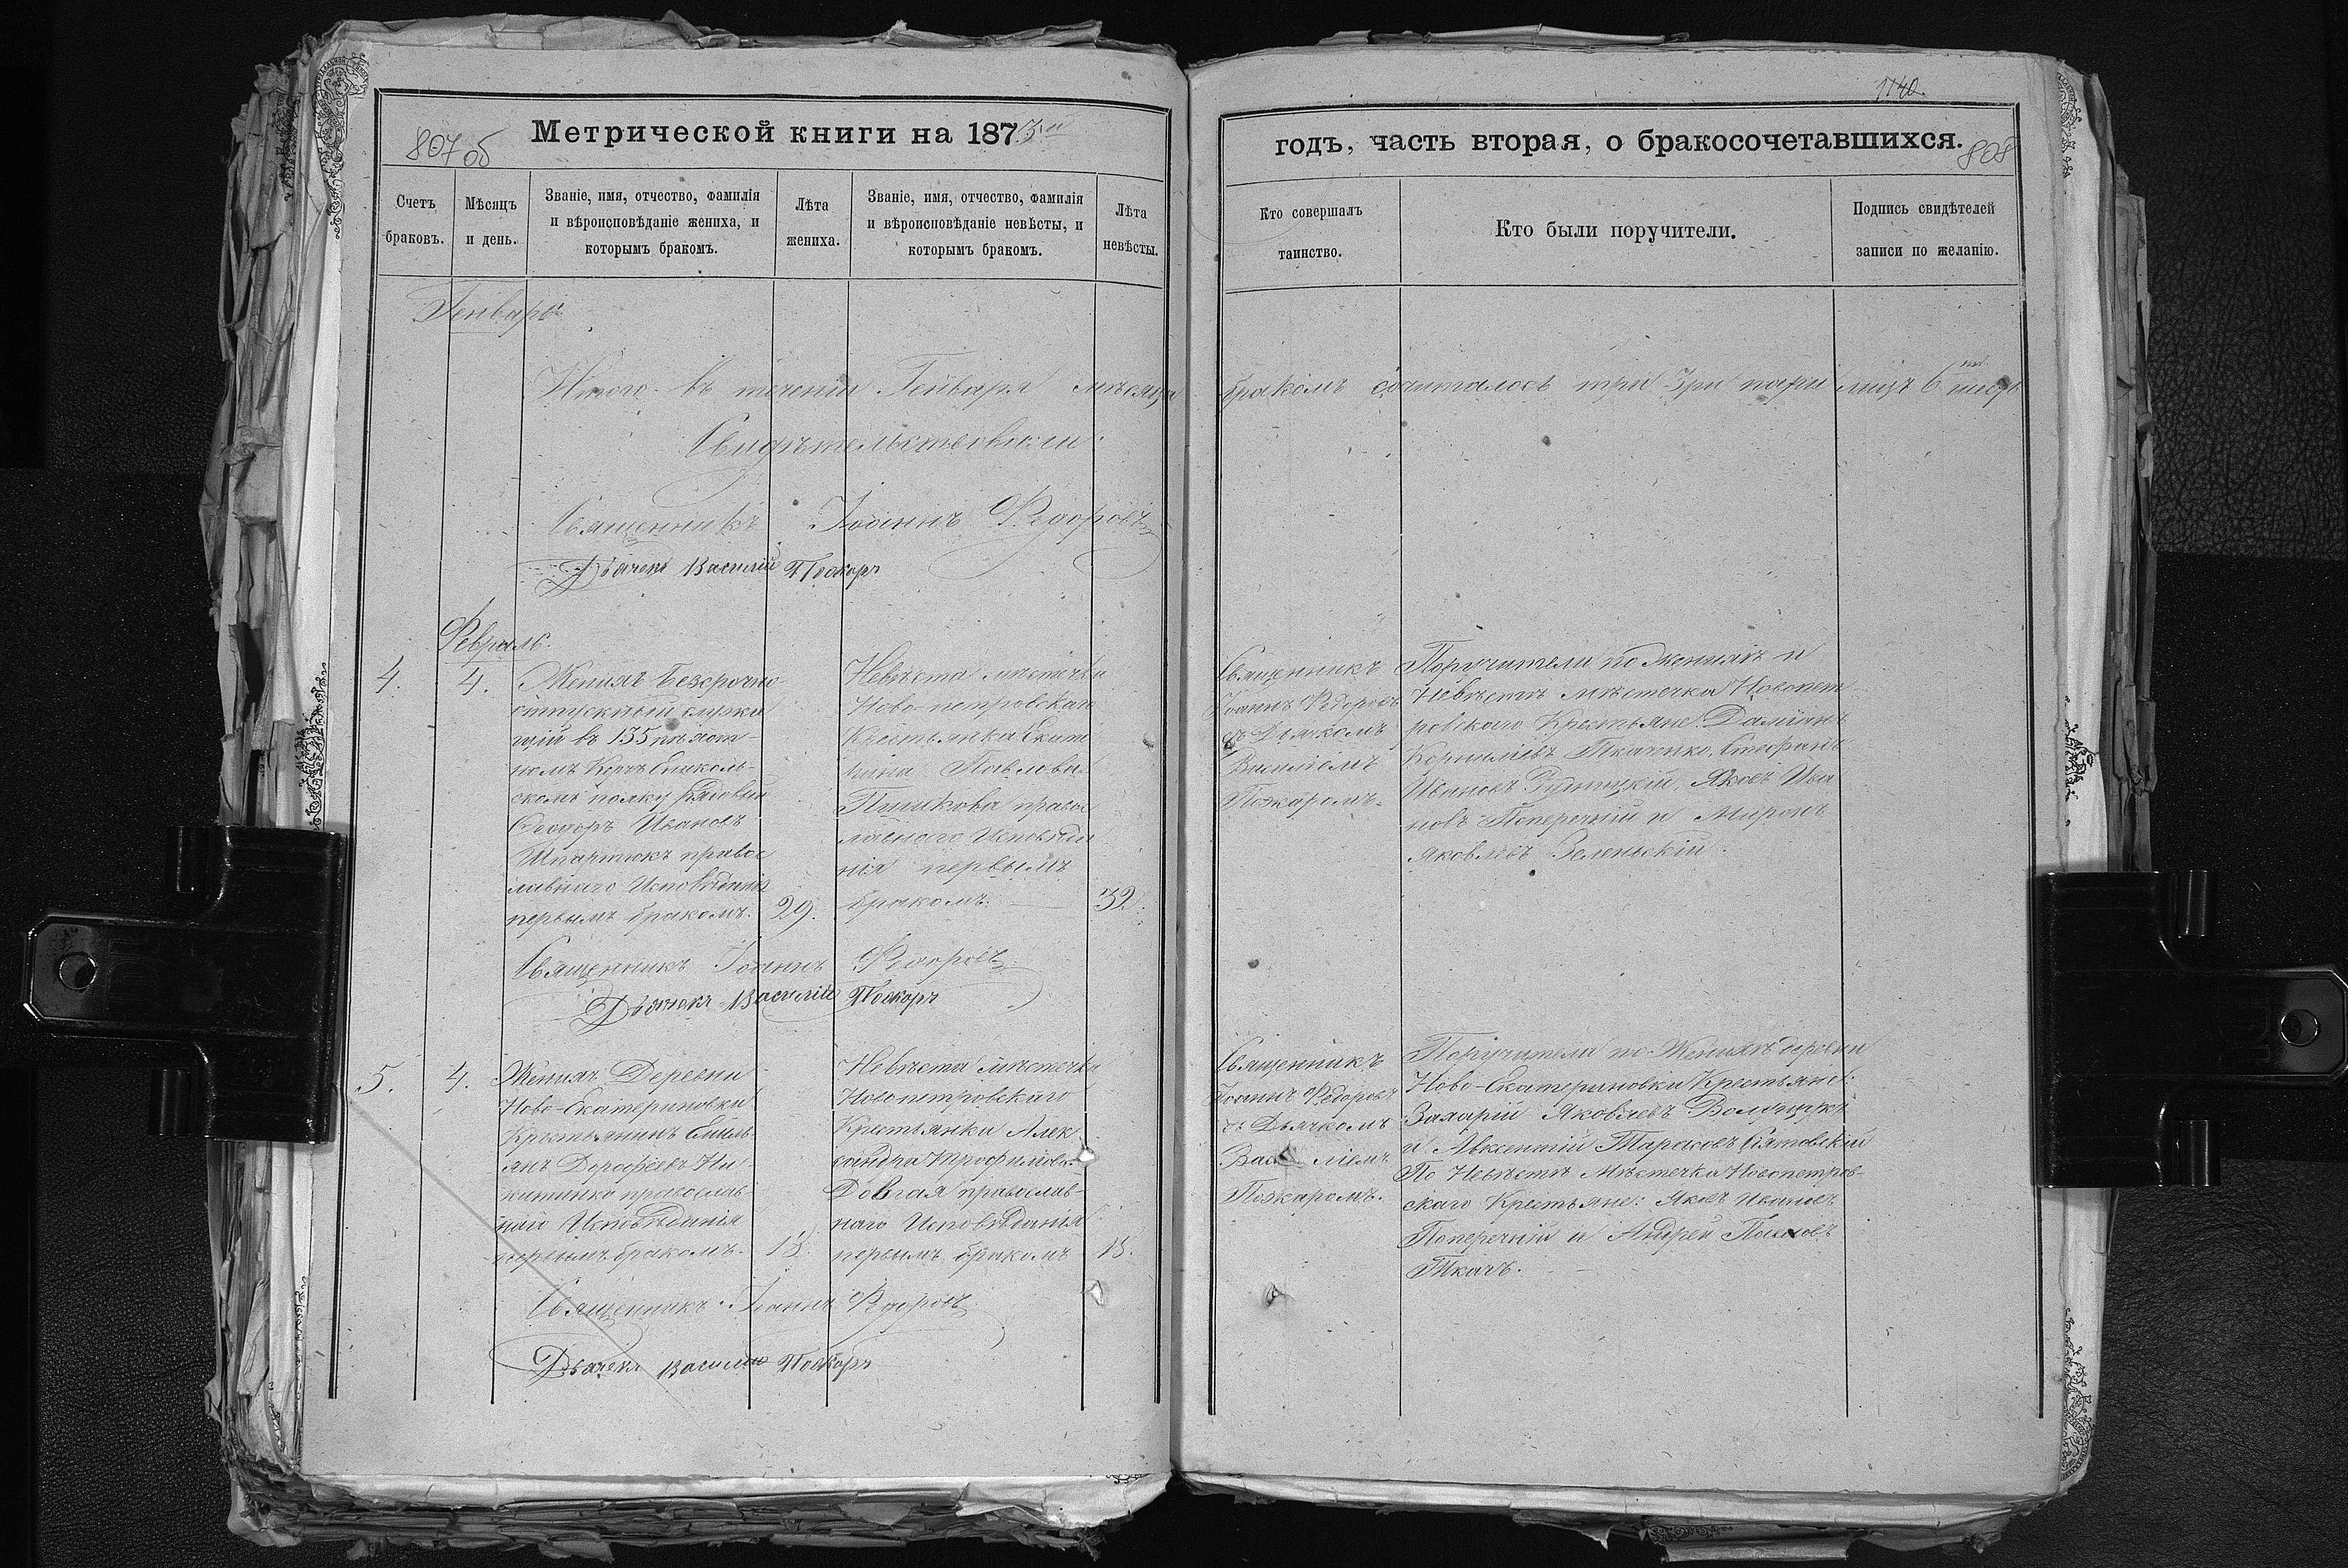 807 об
Метрической книги на 1873й
Счетъ браковъ.
Мѣсяцъ и день.
Званіе, имя, отчество, фамилія и вѣроисповѣданіе жениха, и которымъ бракомъ.
Лѣта жениха.
Званіе, имя, отчество, фамилія и вѣроисповѣданіе невѣсты, и которымъ бракомъ.
Лѣта невѣсты.
Генварь
Итого въ теченіи Генваря мѣсяца
Свидѣтельствовали:
Священникъ Іоаннъ Федоровъ
Дьячекъ Василій Пожаръ
Февраль.
4.
4.
Женихъ Безсрочно-
отпускный служа
щій въ 135 пѣхот-
номъ Керчь Ениколь-
скомъ полку рядовый
Ѳеодоръ Ивановъ
православ
лавнаго Исповѣданія
первымъ бракомъ.
29.
Невѣста мѣстечка
Ново-петровскаго
Крестьянка Екате
рина Павлова
Пишкова правос
лавнаго Исповѣда
нія первымъ
бракомъ.
32.
Священникъ Іоаннъ Федоровъ
Дьячекъ Василій Пожаръ
5.
4.
Женихъ Деревни
Ново-Екатериновки
Крестьянинъ Емель
янъ Дорофеевъ Ни-
китенко православ
наго Исповѣданія
первымъ бракомъ.
18.
Невѣста мѣстечка
Новопетровскаго
Крестьянка Алек
сандра Трофимова
Довгая православ-
наго Исповѣданія
первымъ бракомъ
18.
Священникъ Іоаннъ Федоровъ
Дьячекъ Василій Пожаръ
1140.
годъ, часть вторая, о бракосочетавшихся.
808
Кто совершалъ таинство.
Кто были поручители.
Подпись свидѣтелей записи по желанію.
бракомъ сочиталось три 3ри пары лицъ 6 шесть
Священникъ
Іоаннъ Федоровъ
съ Дьячкомъ
Василіемъ
Пожаромъ.
Поручители по женихѣ и
Невѣстѣ мѣстечка Новопет
ровскаго Крестьяне: Даміанъ
Корниліевъ Ткаченко, Стефанъ
Ивановъ Рудницкій, Яковъ Ива
новъ Поперечній и Миронъ
Яковлевъ Зеленьскій.
Священникъ
Іоаннъ Федоровъ
съ Дьячкомъ
Василіемъ
Пожаромъ.
Поручители по Женихѣ деревни
Ново-Екатериновки Крестьяне:
Захарій Яковлевъ
и Авксентій Тарасовъ
По Невѣстѣ Мѣстечка Новопетров-
скаго Крестьяне: Яковъ Ивановъ
Поперечній и Андрей Павловъ
Ткачъ.